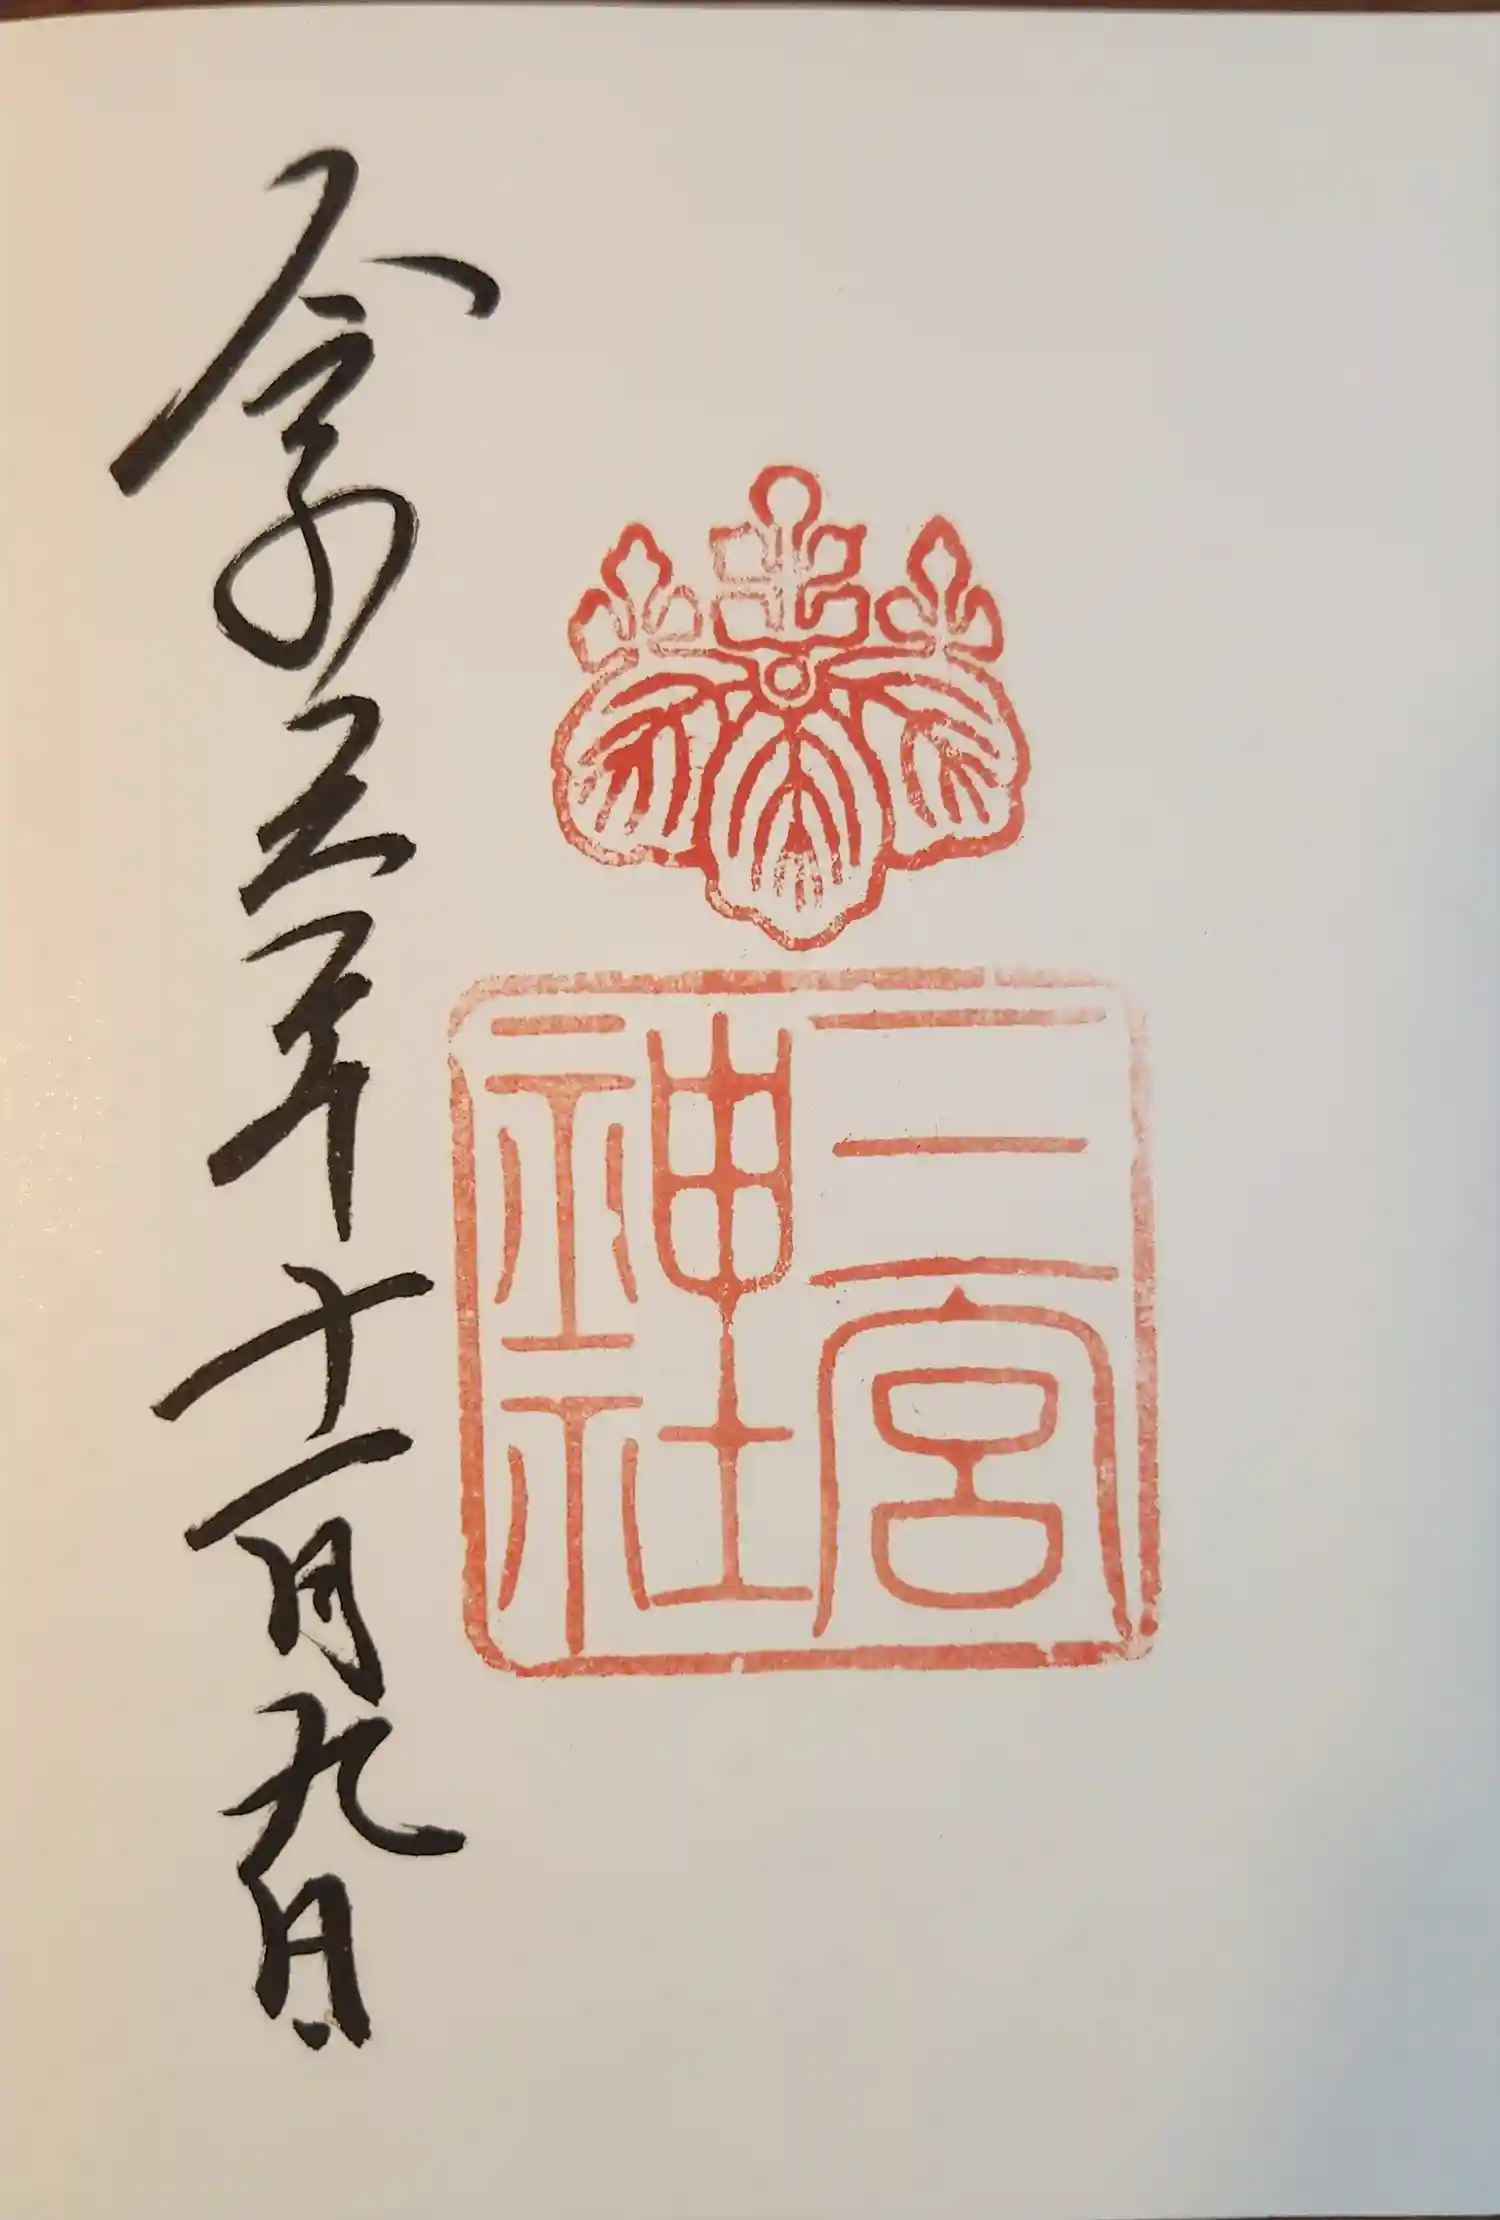 三宮
神社
令和五年十一月九日